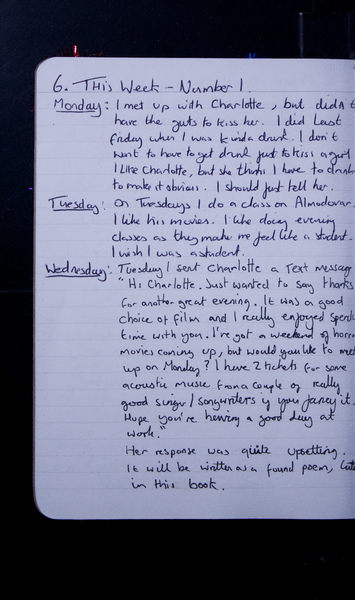 6. This Week - Number 1.
Monday: I met up with Charlotte, but didn't
have the guts to kiss her. I did last
Friday when I was kinda drunk. I don't
want to have to get drunk just to kiss a girl
I like Charlotte, but she thinks I have to drink
to make it obvious. I should just tell her.
Tuesday: On Tuesdays I do a class on Almodovar.
I like his movies. I like doing evening
classes as they make me feel like a student.
I wish I was a student.
Wednesday: Tuesday I sent Charlotte a text message
"Hi Charlotte. Just wanted to say thanks
for another great evening. It was a good
choice of film and I really enjoyed spend
time with you. I've got a weekend of horror
movies coming up, but would you like to meet
up on Monday? I have 2 tickets for some
acoustic music from a couple of really
good singer/songwriters if you fancy it.
Hope you're having a good day at
work."
Her response was quite upsetting.
It will be written as a found poem, later
in this book.